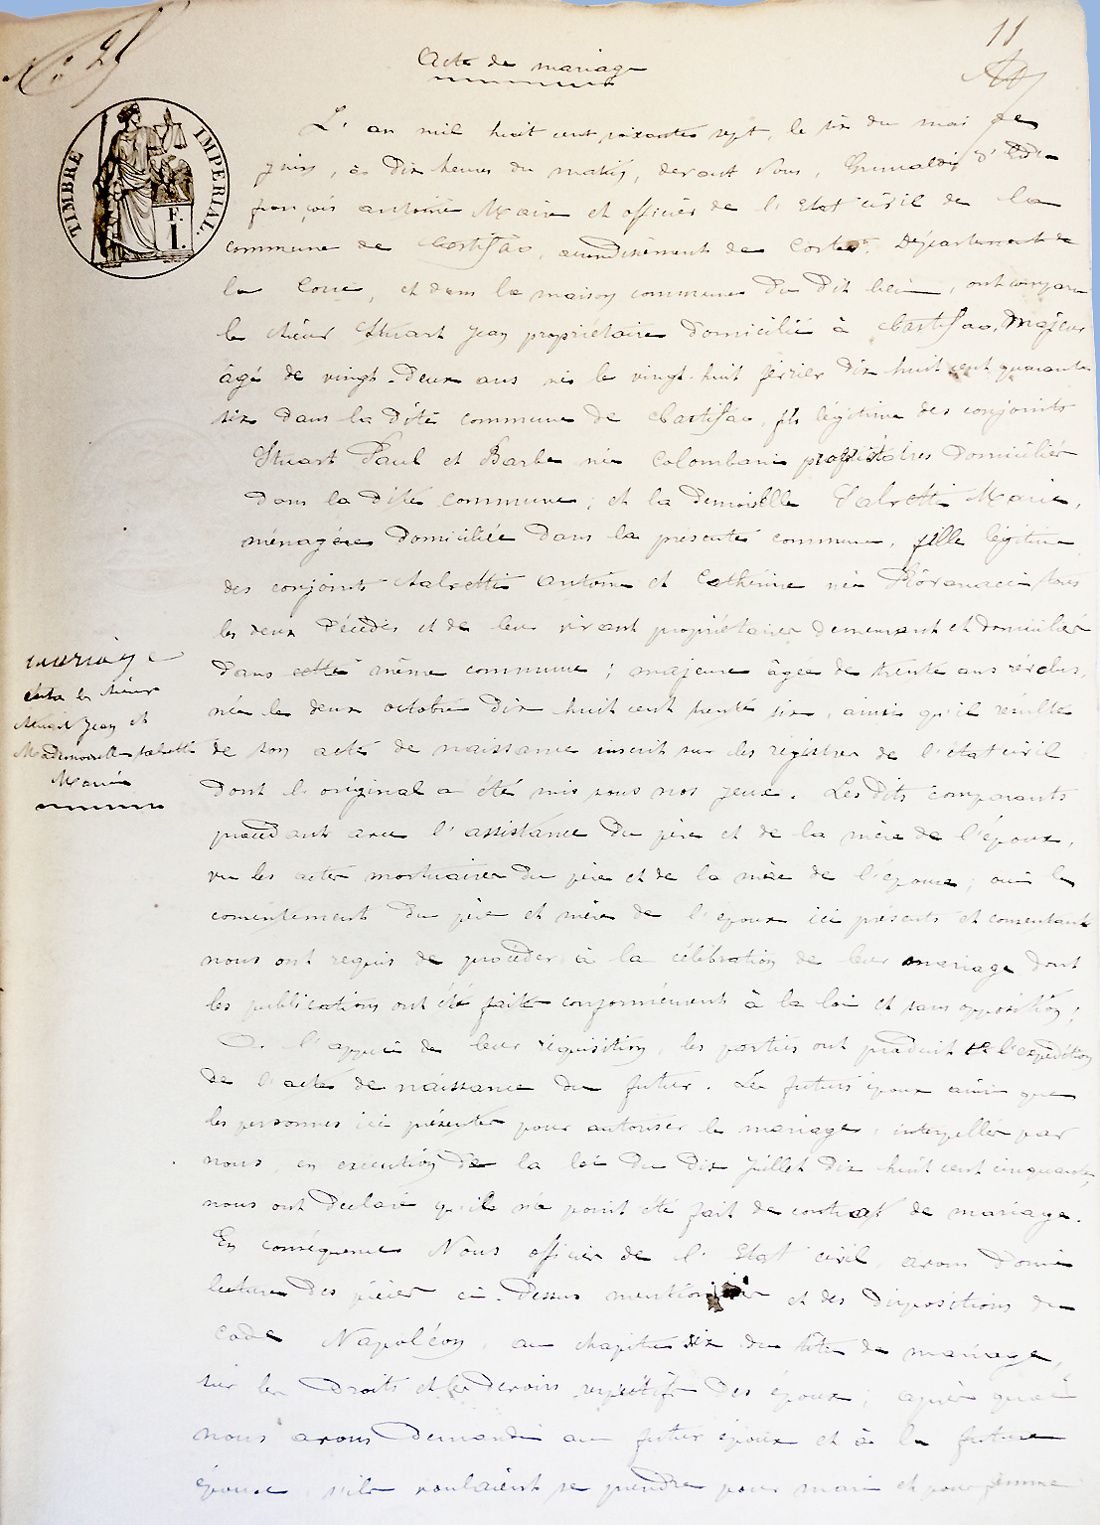 N° 25
11
Acte de mariage
TIMBRE IMPERIAL.
F.
I.
L'an mil huit cent soixante sept, le six du mois de
juin, à dix heures du matin, devant Nous, Grimaldi d'Esdra
françois antoine Maire et officier de l'Etat civil de la
commune de Castifao, arrondissement de Corte, Département de
la Corse, et dans la maison commune du dit lieu, ont comparu
le sieur Stuart Jean propriétaire domicilié à Castifao, Majeur
âgé de vingt-deux ans né le vingt-huit février dix huit cent quarante
six dans la dite commune de Castifao, fils légitime des conjoints
Stuart Paul et Barbe née Colombani propriétaires domiciliés
dans la dite commune; et la demoiselle Salvetti Marie,
ménagère domiciliée dans la présente commune, fille légitime
des conjoints Salvetti antoine et Cathérine née tous
les deux décédés et de leur vivant propriétaires demeurant et domiciliés
dans cette même commune; majeure âgée de trente ans révolus,
née le deux octobre dix huit cent trente six, ainsi qu'il résulte
de son acte de naissance inscrit sur les régistres de l'état civil
dont l'original a été mis sous nos yeux. Les dits comparants
procédant avec l'assistance du père et de la mère de l'époux,
vu les actes mortuaires du père et de la mère de l'épouse; ouï le
consentement du père et mère de l'époux ici présents et consentant
nous ont requis de procéder à la célébration de leur mariage dont
les publications ont été faites conformément à la loi et sans opposition;
A l'appui de leur réquisition, les parties ont produit l'expédition
de l'acte de naissance du futur. Les futurs époux ainsi que
les personnes ici présentes pour autoriser le mariage, interpellés par
nous, en exécution de la loi du dix juillet dix huit cent cinquante,
nous ont déclaré qu'ils n'a point été fait de contrat de mariage.
En conséquence Nous officier de l'Etat civil, avons donné
lecture des pièces ci-dessus mentionnées et des dispositions du
Code Napoléon, au chapitre six du titre de mariage,
sur les droits et les devoirs respectifs des époux; après quoi
nous avons demandé au futur époux et à la future
épouse, s'ils voulaient se prendre pour mari et pour femme
mariage
entre le sieur
Stuart Jean et
Mademoiselle Salvetti
Marie